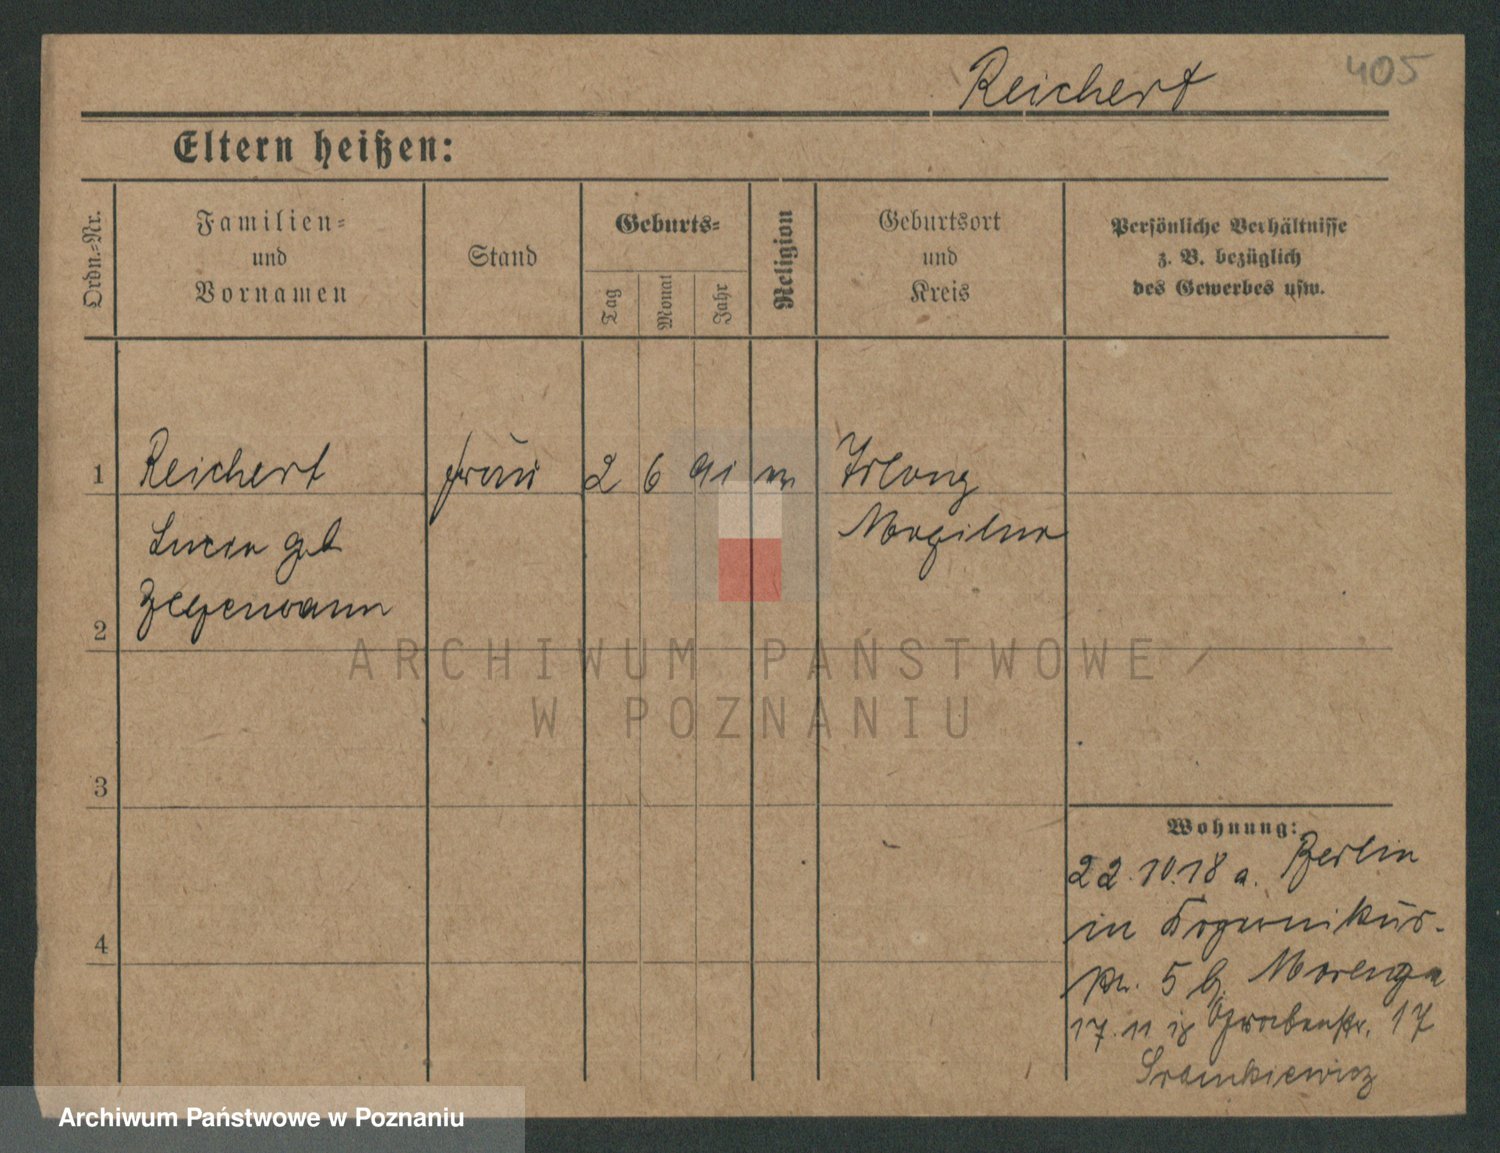 Reichert
405
Eltern heißen:
Ordn.-Nr.
Familien-
und
Vornamen
Stand
Geburts-
Tag
Monat
Jahr
Religion
Geburtsort
und
Kreis
Persönliche Verhältnisse
z. B. bezüglich
des Gewerbes usw.
1
Reichert
frau
2
6
91
Mogilno
geb
2
3
4
Wohnung:
22.10.18 a. Berlin
in Kopernikus-
str. 5 b.
17.11 Grabenstr. 17
ARCHIWUM PAŃSTWOWE
W POZNANIU
Archiwum Państwowe w Poznaniu